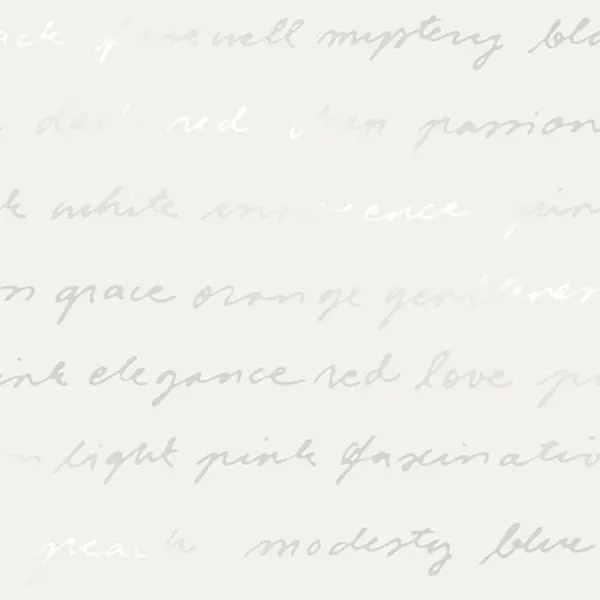 ack farewell mystery bla
dark red deep passion
k white innocence pin
n grace orange gentlenes
ink elegance red love pu
light pink fascinatio
peach modesty blue